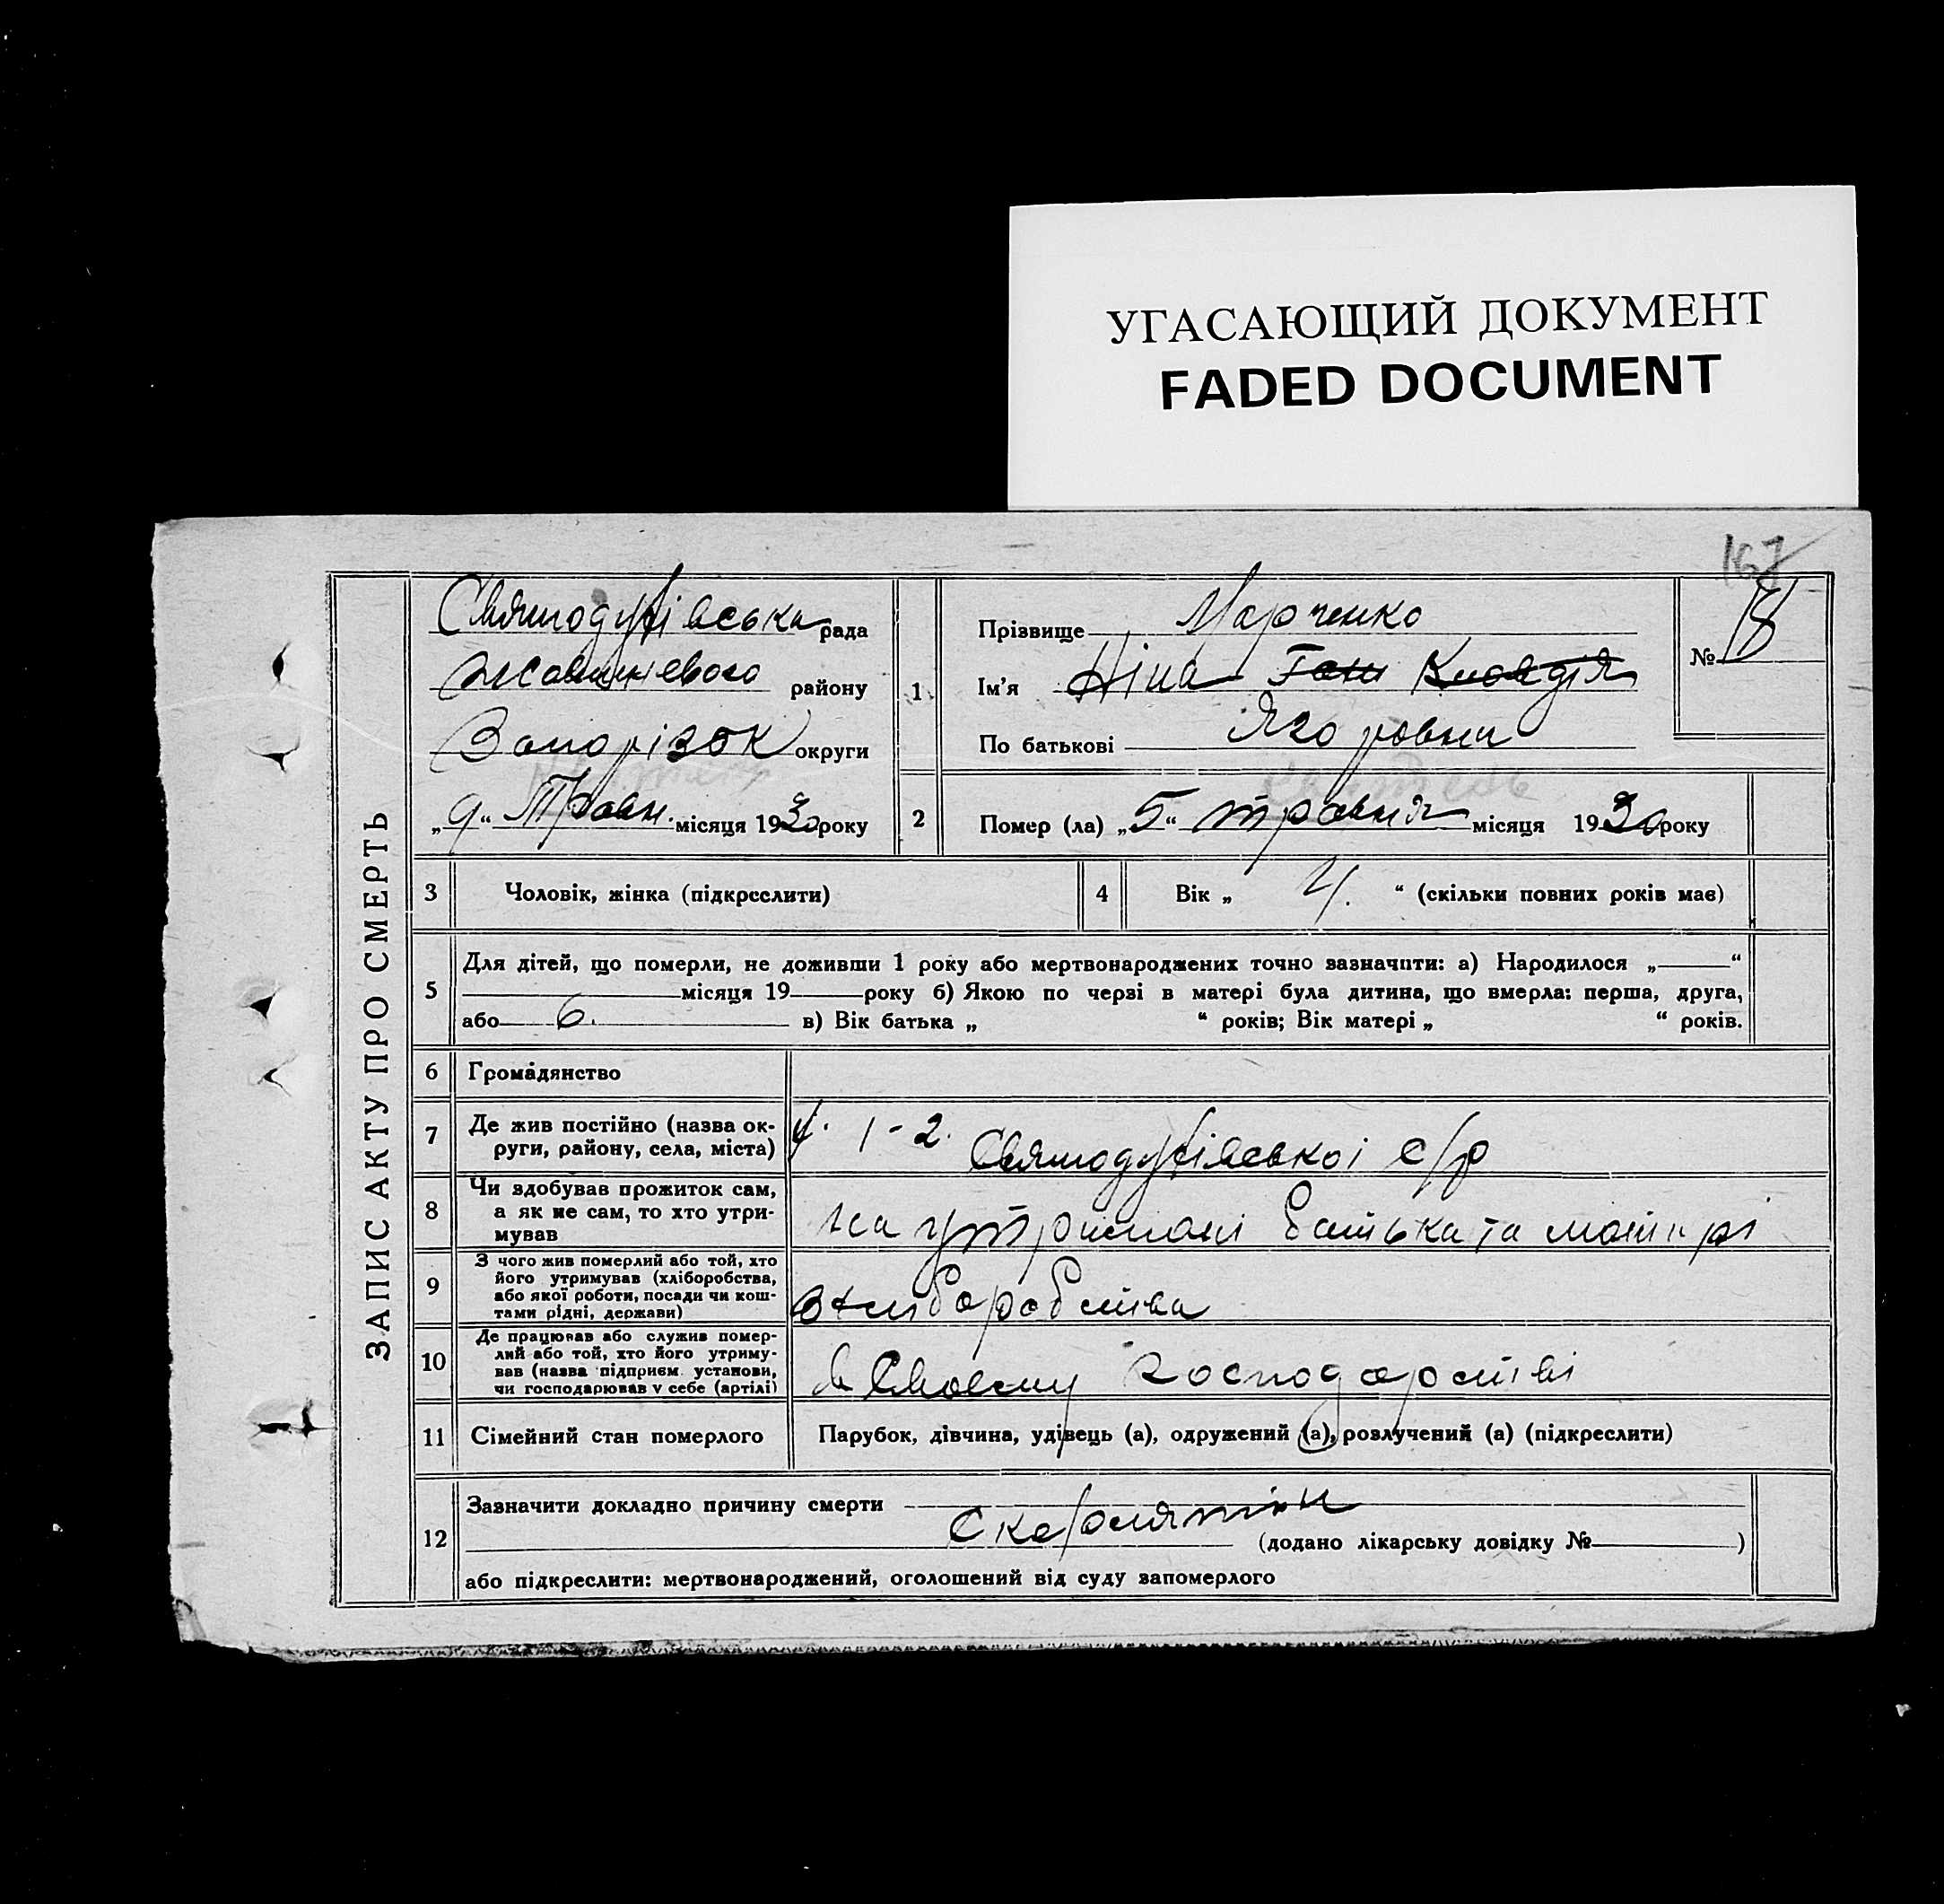 УГАСАЮЩИЙ ДОКУМЕНТ
FADED DOCUMENT
167
ЗАПИС АКТУ ПРО СМЕРТЬ
Святодухівська рада
Жовтневого району
Запорізьк округи
„9“ Травн. місяця 1930 року
1
Прізвище Марченко
Ім’я Ніна Ган Клавдія
По батькові Ягоровна
№ 78
2
Помер (ла) „5“ травня місяця 1930 року
3
Чоловік, жінка (підкреслити)
4
Вік „ 4. “ (скільки повних років має)
5
Для дітей, що померли, не доживши 1 року або мертвонароджених точно зазначити: а) Народилося „ “
місяця 19 року б) Якою по черзі в матері була дитина, що вмерла: перша, друга,
або 6. в) Вік батька „ “ років; Вік матері „ “ років.
6
Громадянство
7
Де жив постійно (назва ок-
руги, району, села, міста)
1-2. Святодухівської с/р
8
Чи здобував прожиток сам,
а як не сам, то хто утри-
мував
на утримані батька та матирі
9
З чого жив померлий або той, хто
його утримував (хліборобства,
або якої роботи, посади чи кош-
тами рідні, держави)
з хліборобства
10
Де працював або служив помер-
лий або той, хто його утриму-
вав (назва підприєм. установи,
чи господарював у себе (артілі)
в своєму господарстві
11
Сімейний стан померлого
Парубок, дівчина, удівець (а), одружений (а), розлучений (а) (підкреслити)
12
Зазначити докладно причину смерти
Скарлятіни
(додано лікарську довідку № )
або підкреслити: мертвонароджений, оголошений від суду запомерлого